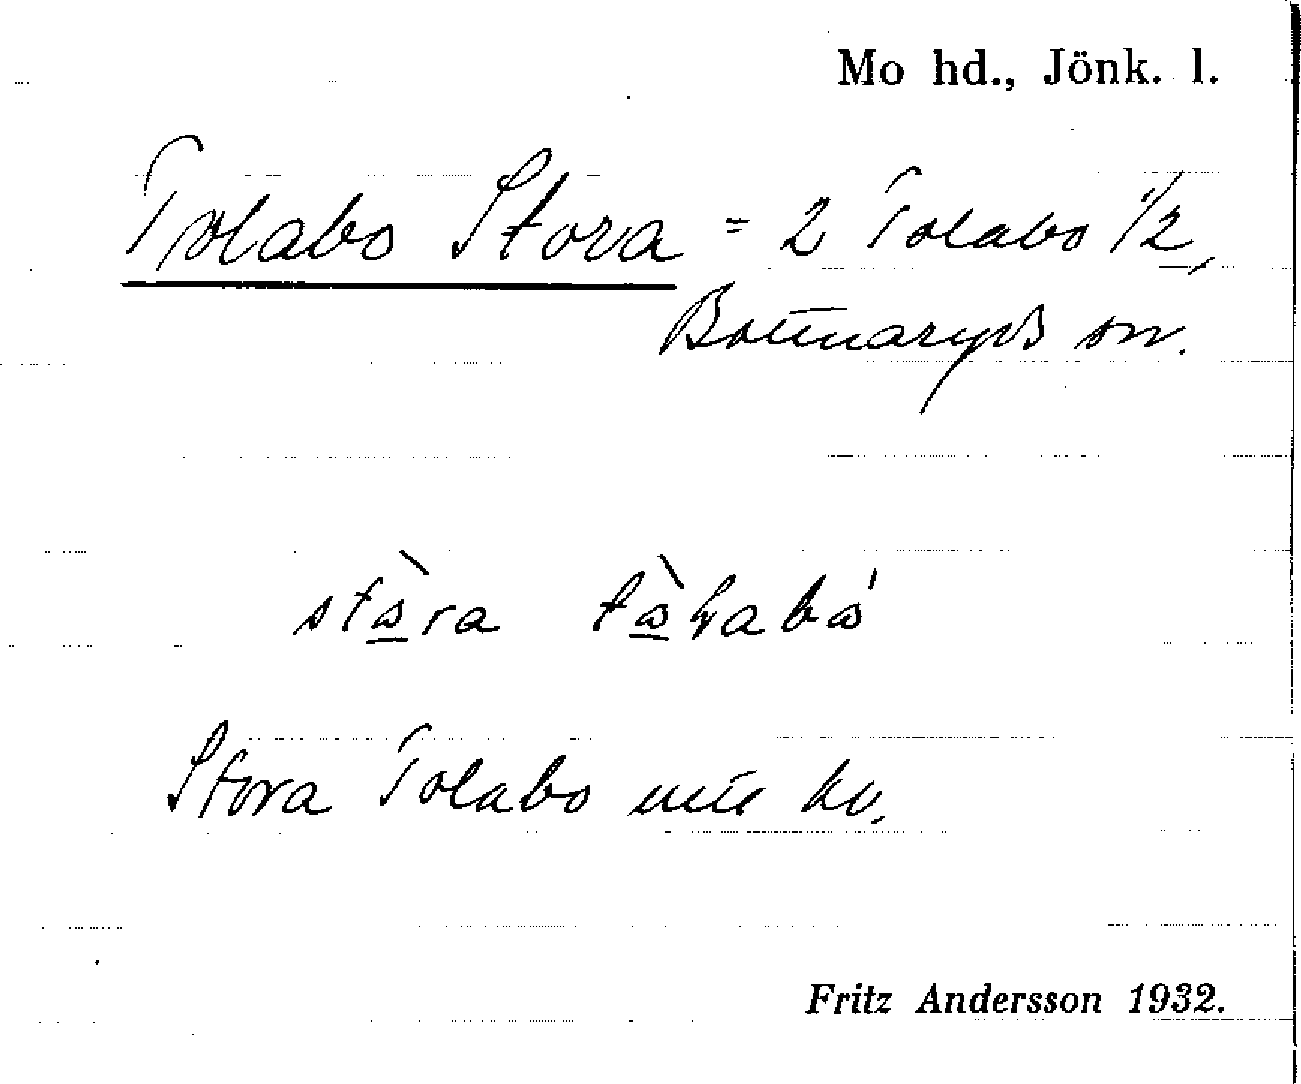 Mo hd., Jönk. l.
Tolabo Stora = 2 Tolabo 1/2,
Bottnaryds sn.
Stora Tolabo
Fritz Andersson 1932.